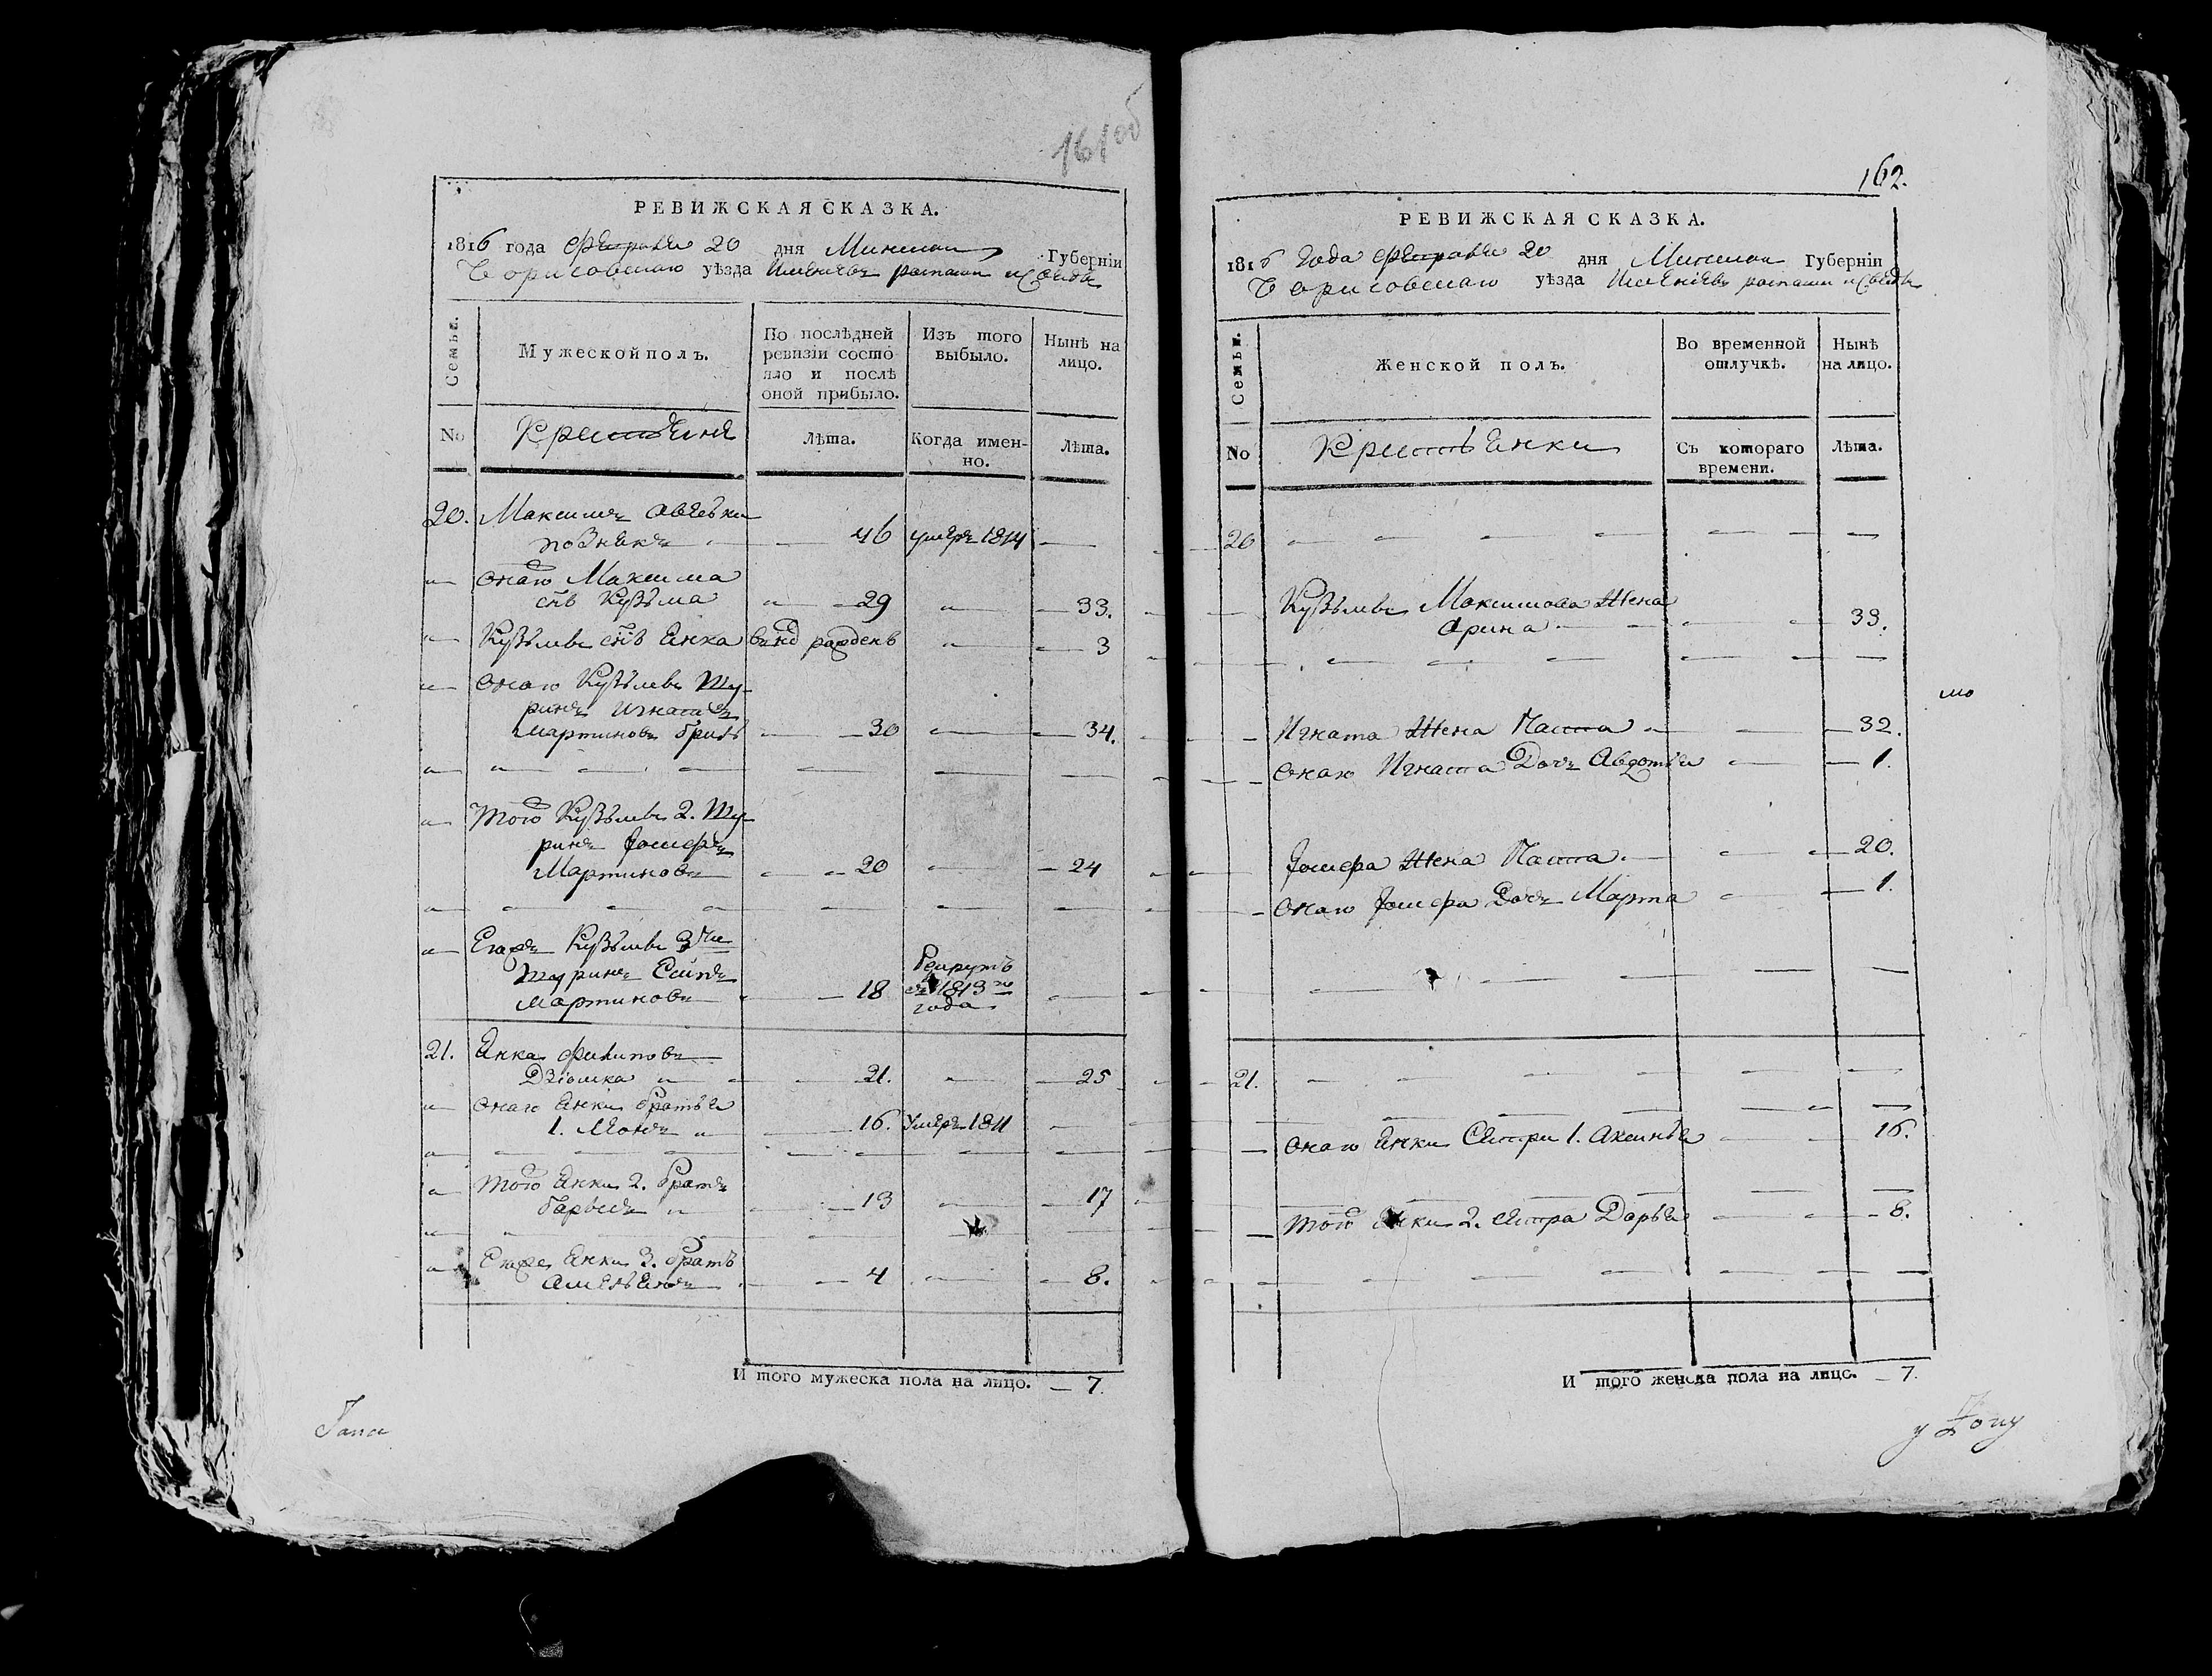 161 об
РЕВИЖСКАЯ СКАЗКА.
1816 года февраля 20 дня Минской Губерніи
Борисовскаго уѣзда
Семьи.
Мужеской полъ.
По послѣдней ревизіи состо
яло и послѣ
оной прибыло.
Изъ того выбыло.
Нынѣ на лицо.
No
Крестьяне
Лѣта.
Когда имен-
но.
Лѣта.
20. Максимъ Авсѣьки
познякъ 46 умеръ 1814
онаго Максима
снъ Кузьма 29 33.
Кузьмы снъ Янка 3
онаго Кузьмы Шу-
ринъ Игнатъ
Мартиновъ 30 34.
того Кузьмы 2. Шу-
ринъ Іозефъ
Мартиновъ 20 24
Еще Кузьмы 3й
шуринъ Есипъ
Мартиновъ 18
Рекрутъ
съ 1813го
года
21. Янка Филиповъ
Дзіомка 21. 25
онаго Янки братья
1. Леонъ 16. Умеръ 1811
того Янки 2. братъ
Барысъ 13 17
Еще Янки 3. братъ
Амельянъ 4 8.
И того мужеска пола на лицо. 7.
162.
РЕВИЖСКАЯ СКАЗКА.
1816 Года февраля 20 дня Минской Губерніи
Борисовскаго уѣзда
Семьи.
Женской полъ.
Во временной
отлучкѣ.
Нынѣ
на лицо.
No
Крестьянки
Съ котораго
времени.
Лѣта.
20
Кузьмы Максимова Жена
Арина 33.
Игната Жена Паста 32.
онаго Игната Дочь Авдотья 1.
Іозефа Жена Паста 20.
онаго Іозефа Дочь Марта 1.
21.
онаго Янки Сестри 1. Аксинья 16.
того Янки 2. сестра Дарья 8.
И того женска пола на лицо. 7.